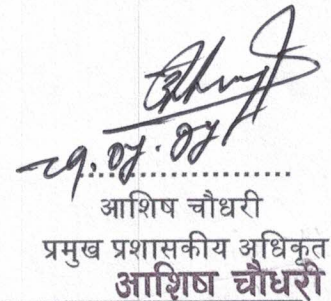 आशिष चौधरी
प्रमुख प्रशासकीय अधिकृत
आशिष चौधरी